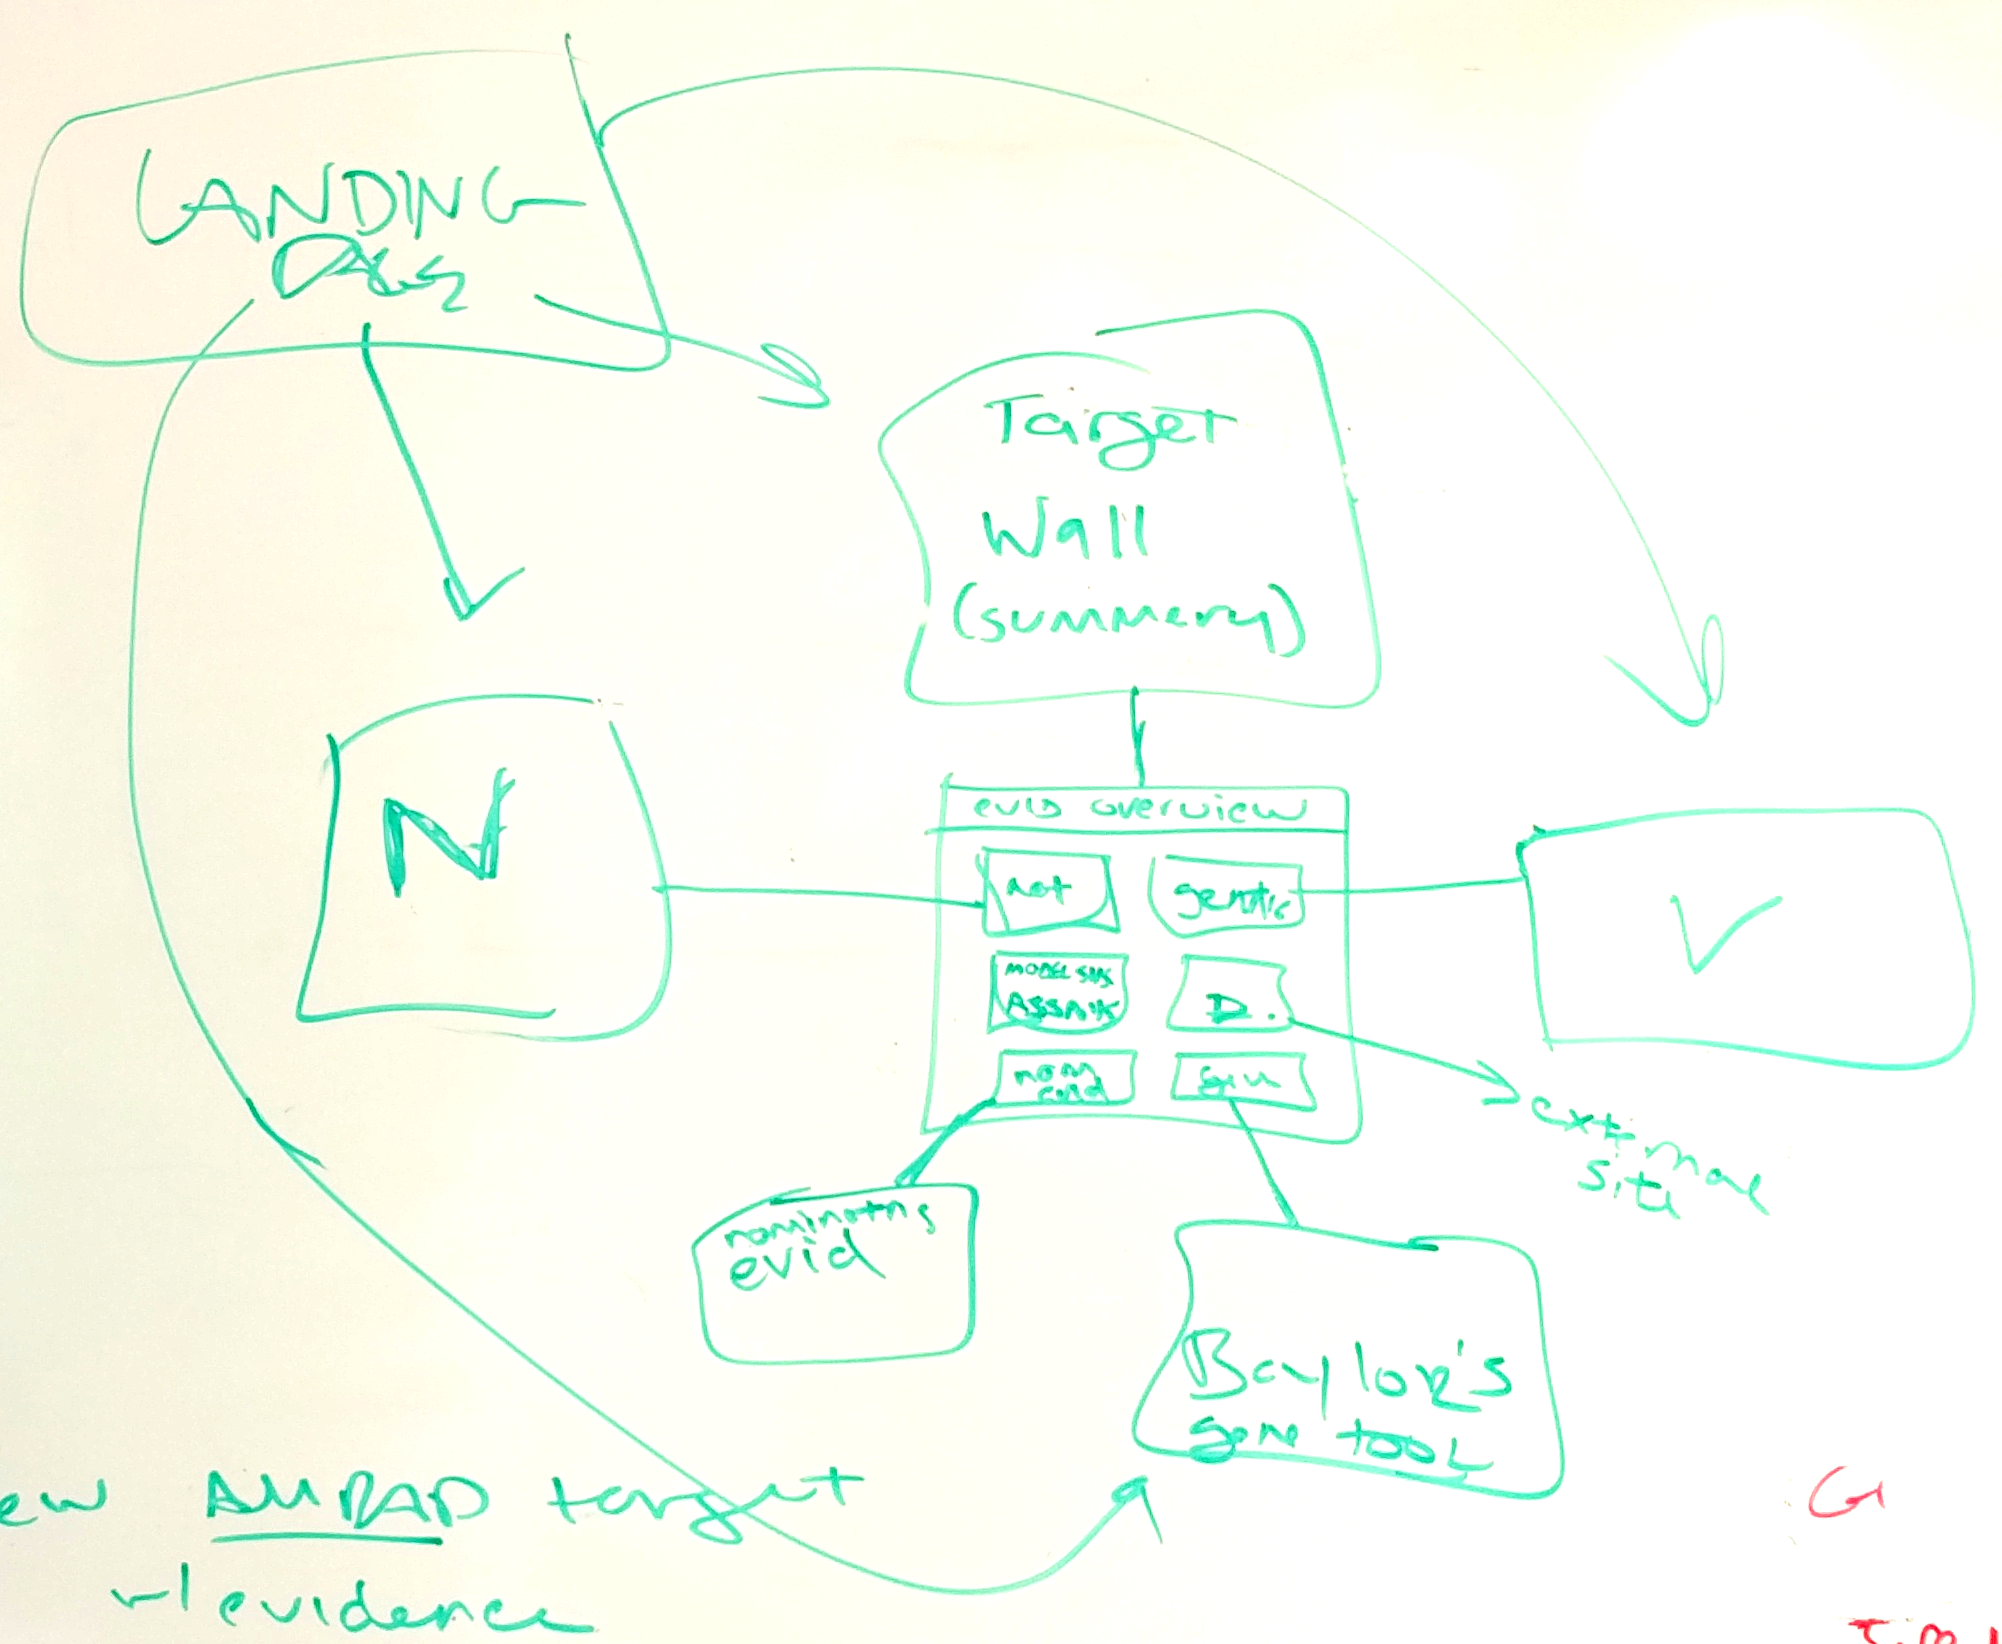 LANDING
PAGE
Target
Wall
(summery)
N
evid overview
net
genetic
MODEL SYS
D.
nom
evid
external
site
nominating
evid
Baylor's
gene tool
ew AMPAD target
w/ evidence
G